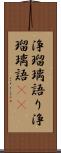 浄瑠璃語り浄
瑠璃語